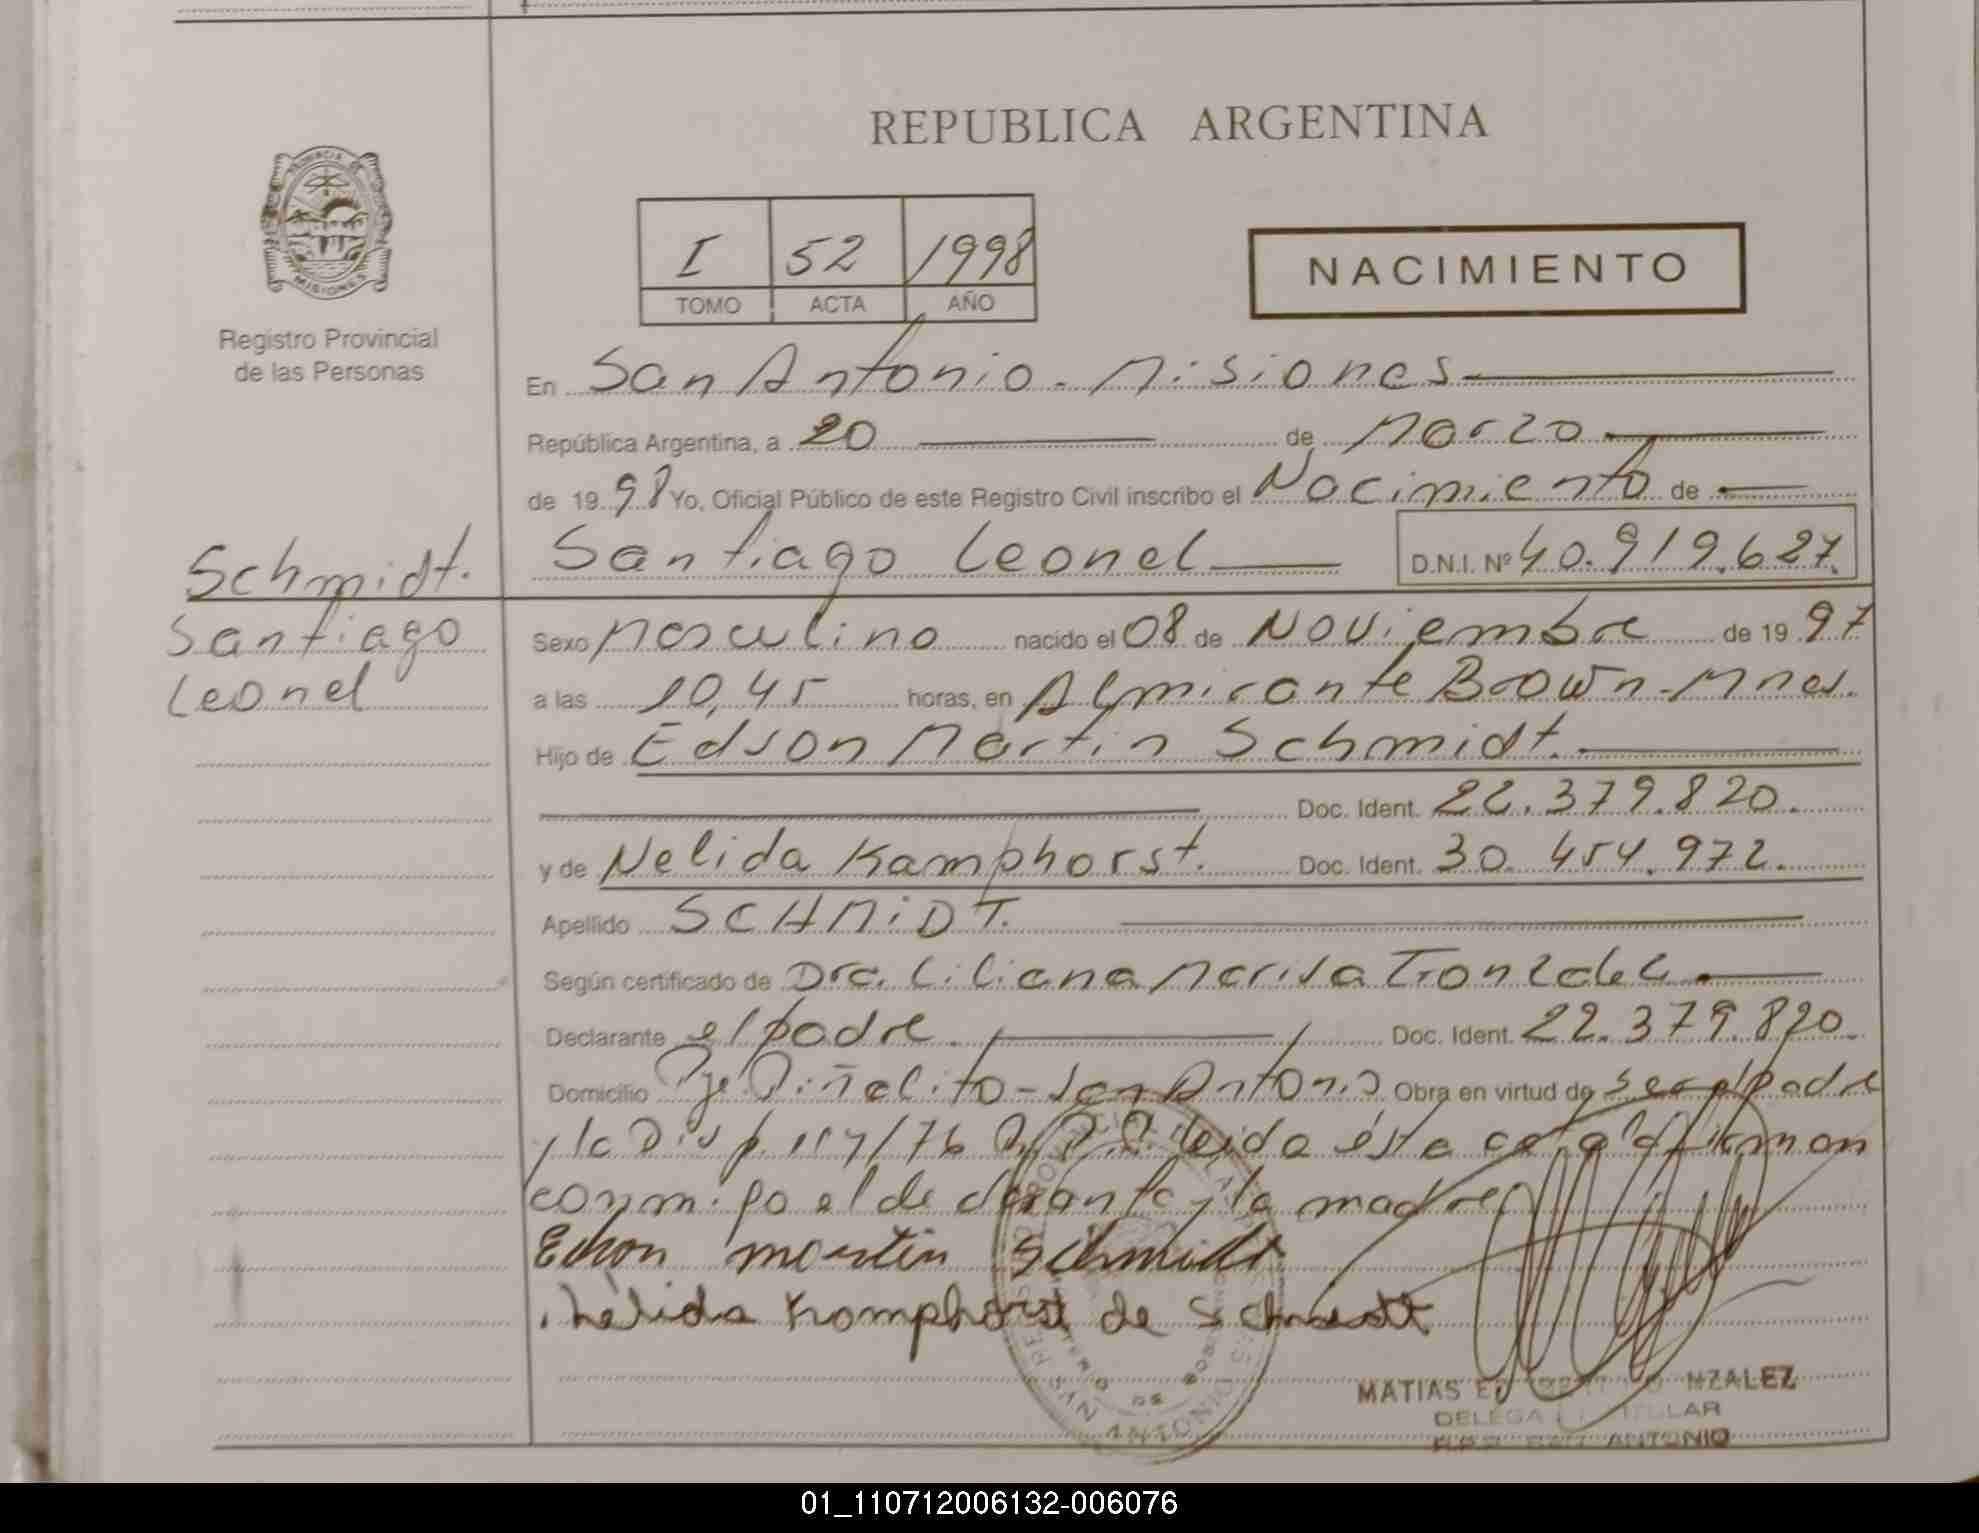 REPUBLICA ARGENTINA
PROVINCIA DE MISIONES
Registro Provincial
de las Personas
I 52 1998
TOMO ACTA AÑO
NACIMIENTO
En San Antonio - Misiones
República Argentina, a 20 de Marzo
de 1998 Yo, Oficial Público de este Registro Civil inscribo el Nacimiento de
Santiago Leonel D.N.I. Nº 40.919.627.
Schmidt.
Santiago
Leonel
Sexo Masculino nacido el 08 de Noviembre de 1997
a las 10,45 horas, en Almirante Brown - Mnes.
Hijo de Edson Martin Schmidt.
Doc. Ident. 22.379.820.
y de Nelida Kamphorst. Doc. Ident. 30.454.972.
Apellido SCHMiDT.
Según certificado de Dra. Liliana Marisa
Declarante el padre. Doc. Ident. 22.379.820.
Domicilio Pje Piñalito - San Antonio Obra en virtud de ser el padre
y la Disp. 117/76 Leida ésta acta firman
conmigo el declarante y la madre
Edson martin Schmidt
nelida Kamphorst de Schmidt
MATIAS NZALEZ
DELEGA TITULAR
R.P.P. SAN ANTONIO
01_110712006132-006076